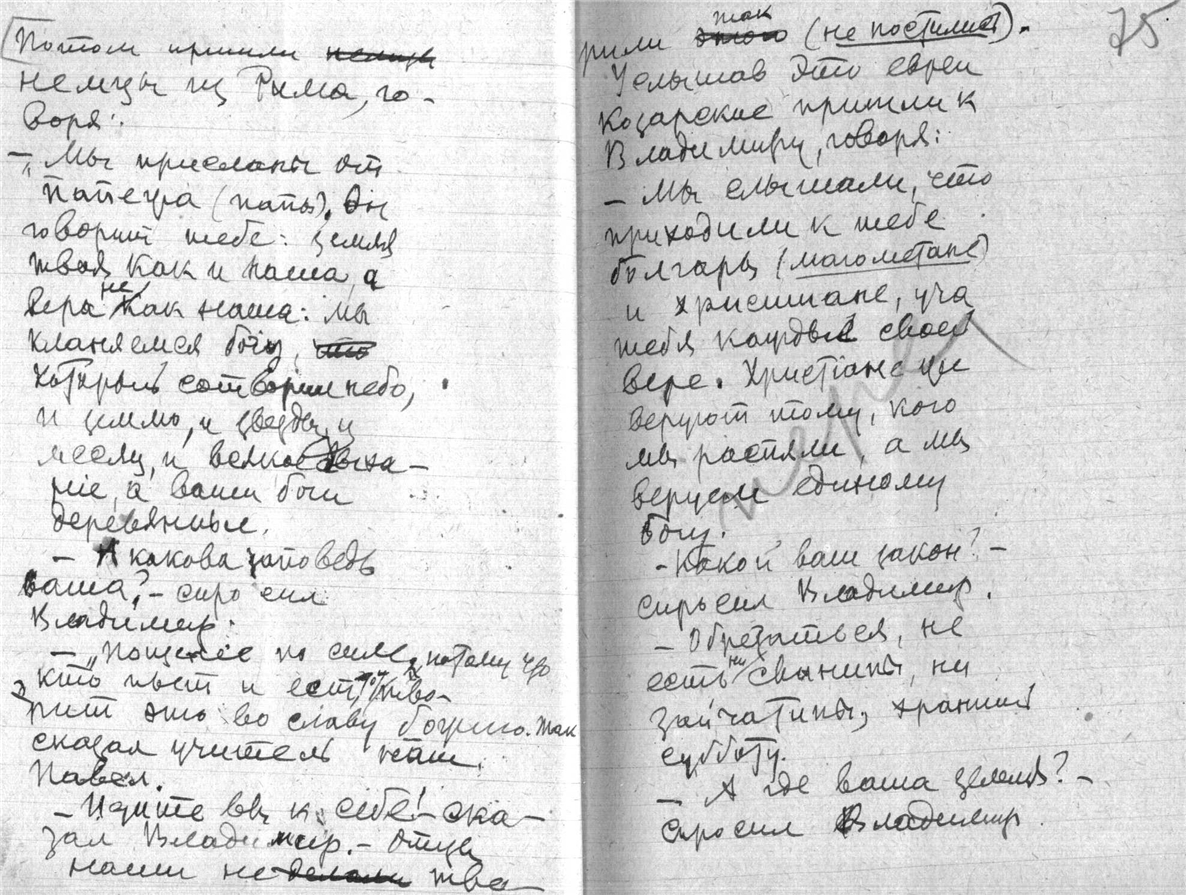 Потом пришли немцы
немцы из Рима, го-
воря:
– „Мы присланы от
Папежа (папы). Он
говорит тебе: земля
твоя как и наша, а
вера не как наша: мы
кланяемся богу, что
который сотворил небо,
и землю, и звезды, и
месяц, и всякое дыха-
ние, а ваши боги
деревянные.
– А какова заповедь
ваша? – спросил
Владимир.
– „Пощение по силе, потому что
кто пьет и ест, тво-
рит это во славу божию. Так
сказал учитель наш
Павел.
– Идите вы к себе! – ска-
зал Владимир. – Отцы
наши не делали тво-
75
рили этого так (не постился).
Услышав это евреи
козарские пришли к
Владимиру, говоря:
– Мы слышали, что
приходили к тебе
болгары (магометане)
и христиане, уча
тебя каждый своей
вере. Христиане
веруют тому, кого
мы распяли, а мы
веруем единому
богу.
– Какой ваш закон? –
спросил Владимир.
– Обрезаться, не
есть ни свинины, ни
зайчатины, хранить
субботу.
– А где ваша земля? –
спросил Владимир